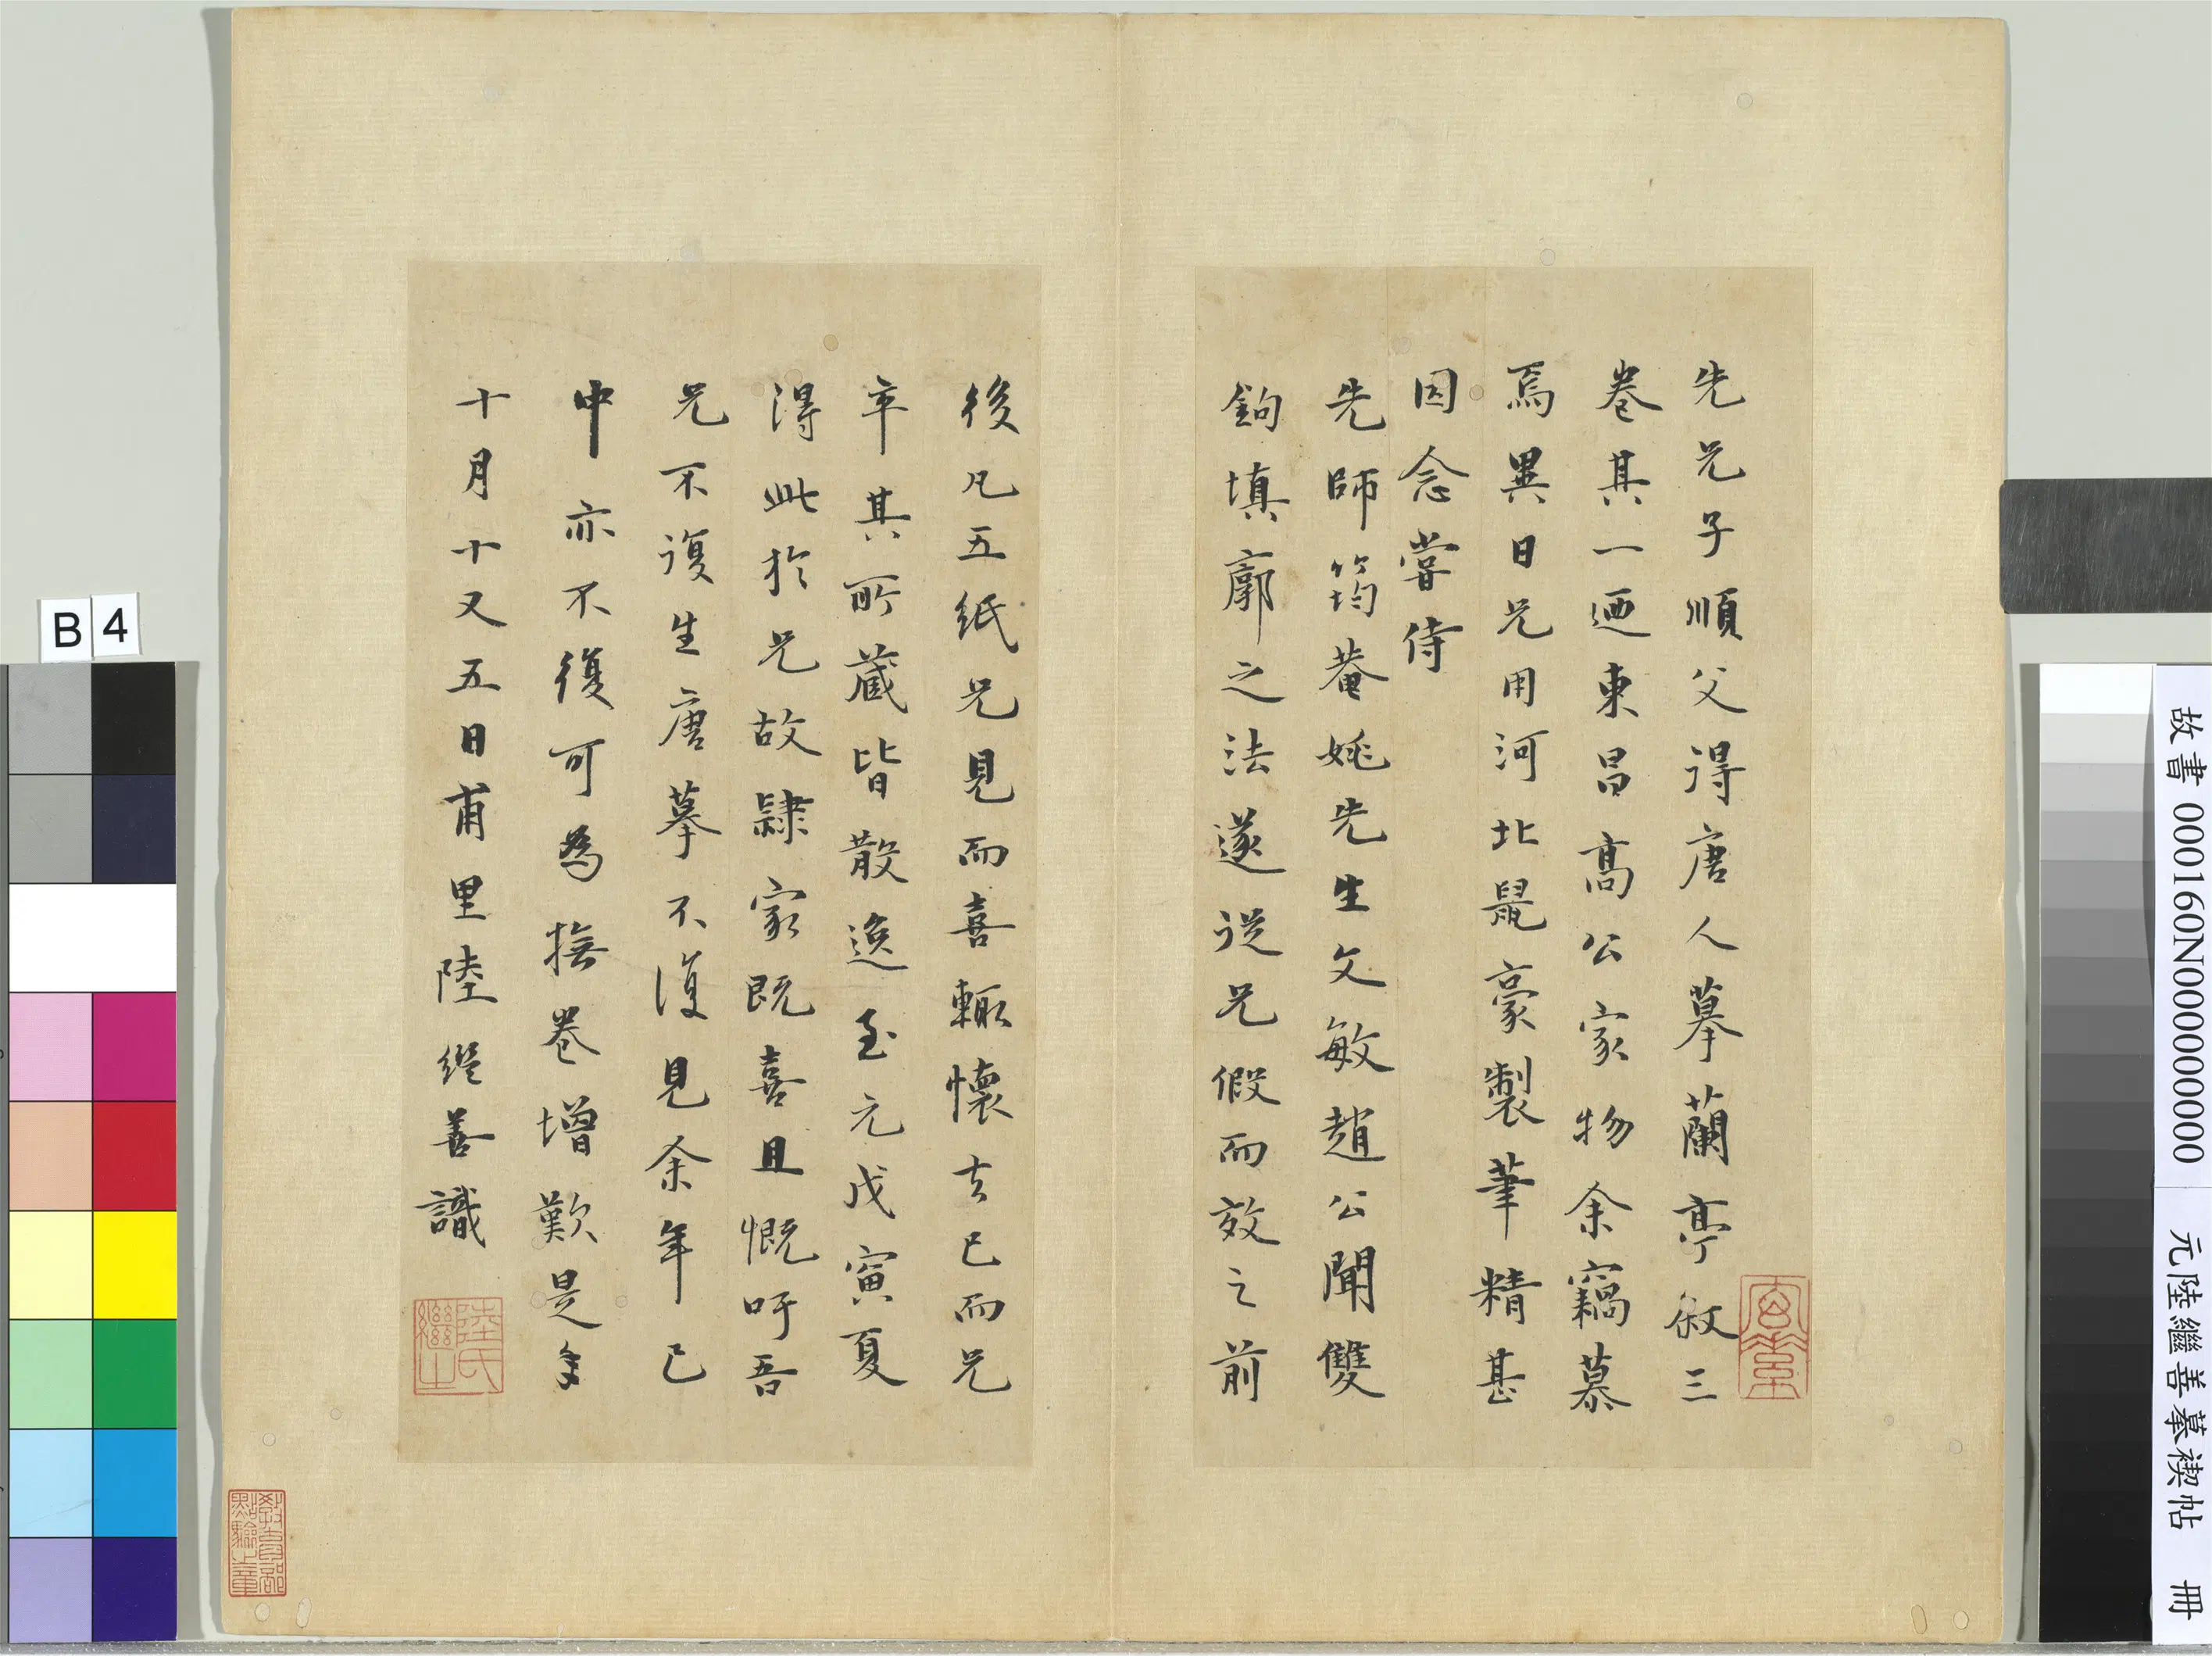 先兄子順父得唐人摹蘭亭敘三
卷其一廼東昌高公家物余竊慕
焉異日兄用河北鼠豪製筆精甚
因念嘗侍
先師筠菴姚先生文敏趙公聞雙
鉤填廓之法遂從兄假而效之前
後凡五紙兄見而喜輒懷去已而兄
卒其所蔵皆散逸至元戊寅夏
淂此於兄故隸家既喜且慨吁吾
兄不復生唐摹不復見余年已
中亦不復可為撫卷增歎是年
十月十又五日甫里陸繼善識
陸氏繼之
教育部點驗之章
B4
故書 000160N000000000 元陸繼善摹禊帖 冊